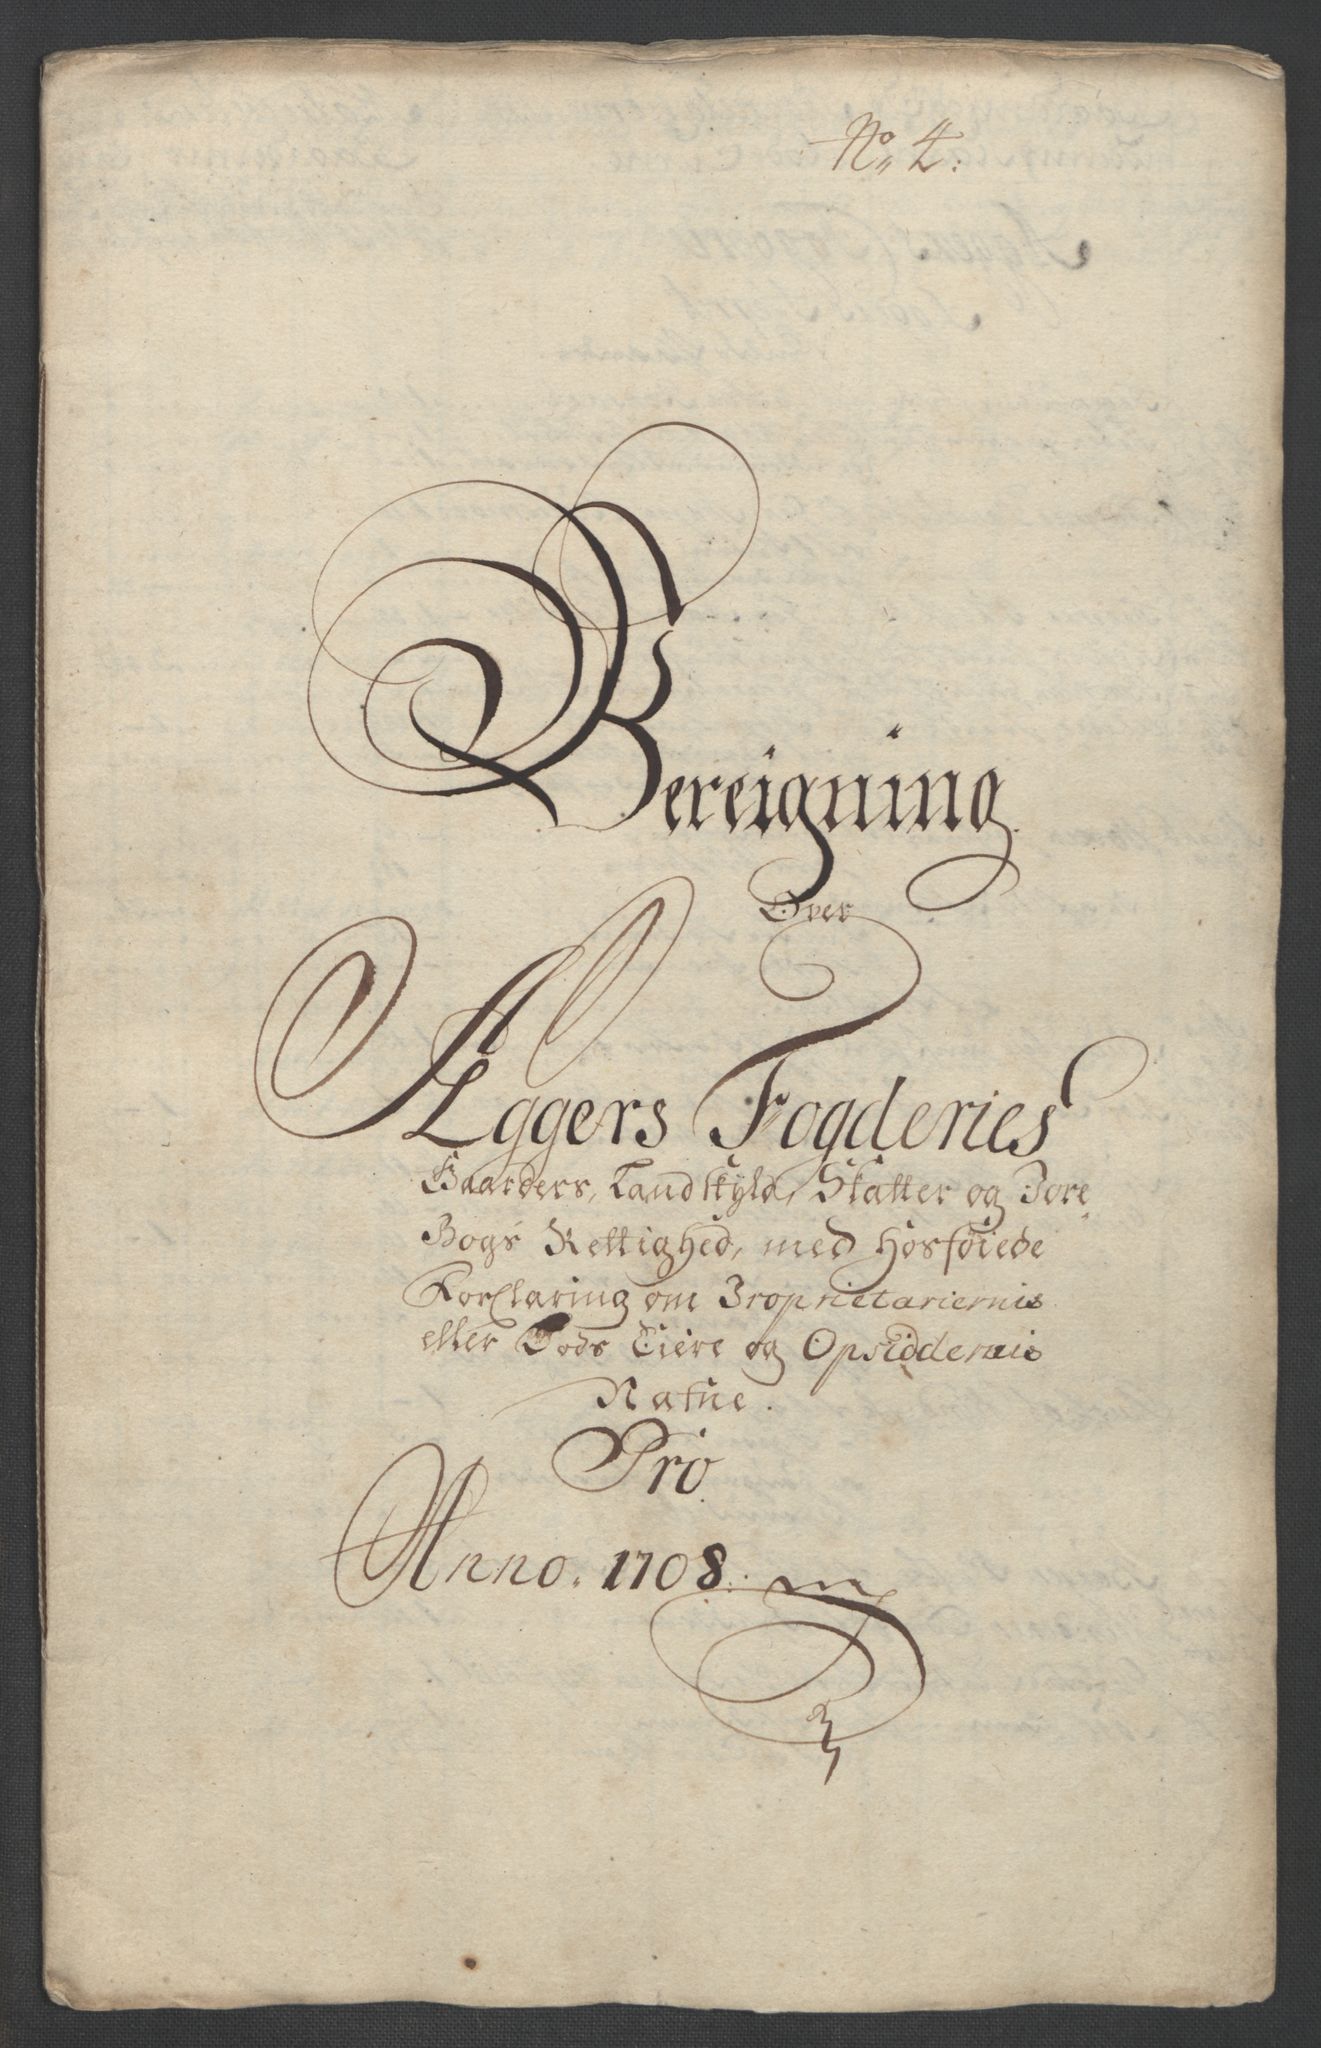 No 4:
Bereigning
Over
Aggers Fogderies
Gaarders, Landskyld, Skatter og Jore
Bogs Rettighed, med Hosføiede
Forclaring om Proprietariernis
eller Gods Eiere og Opsiddernis
Nafne.
Pro
Anno. 1708.